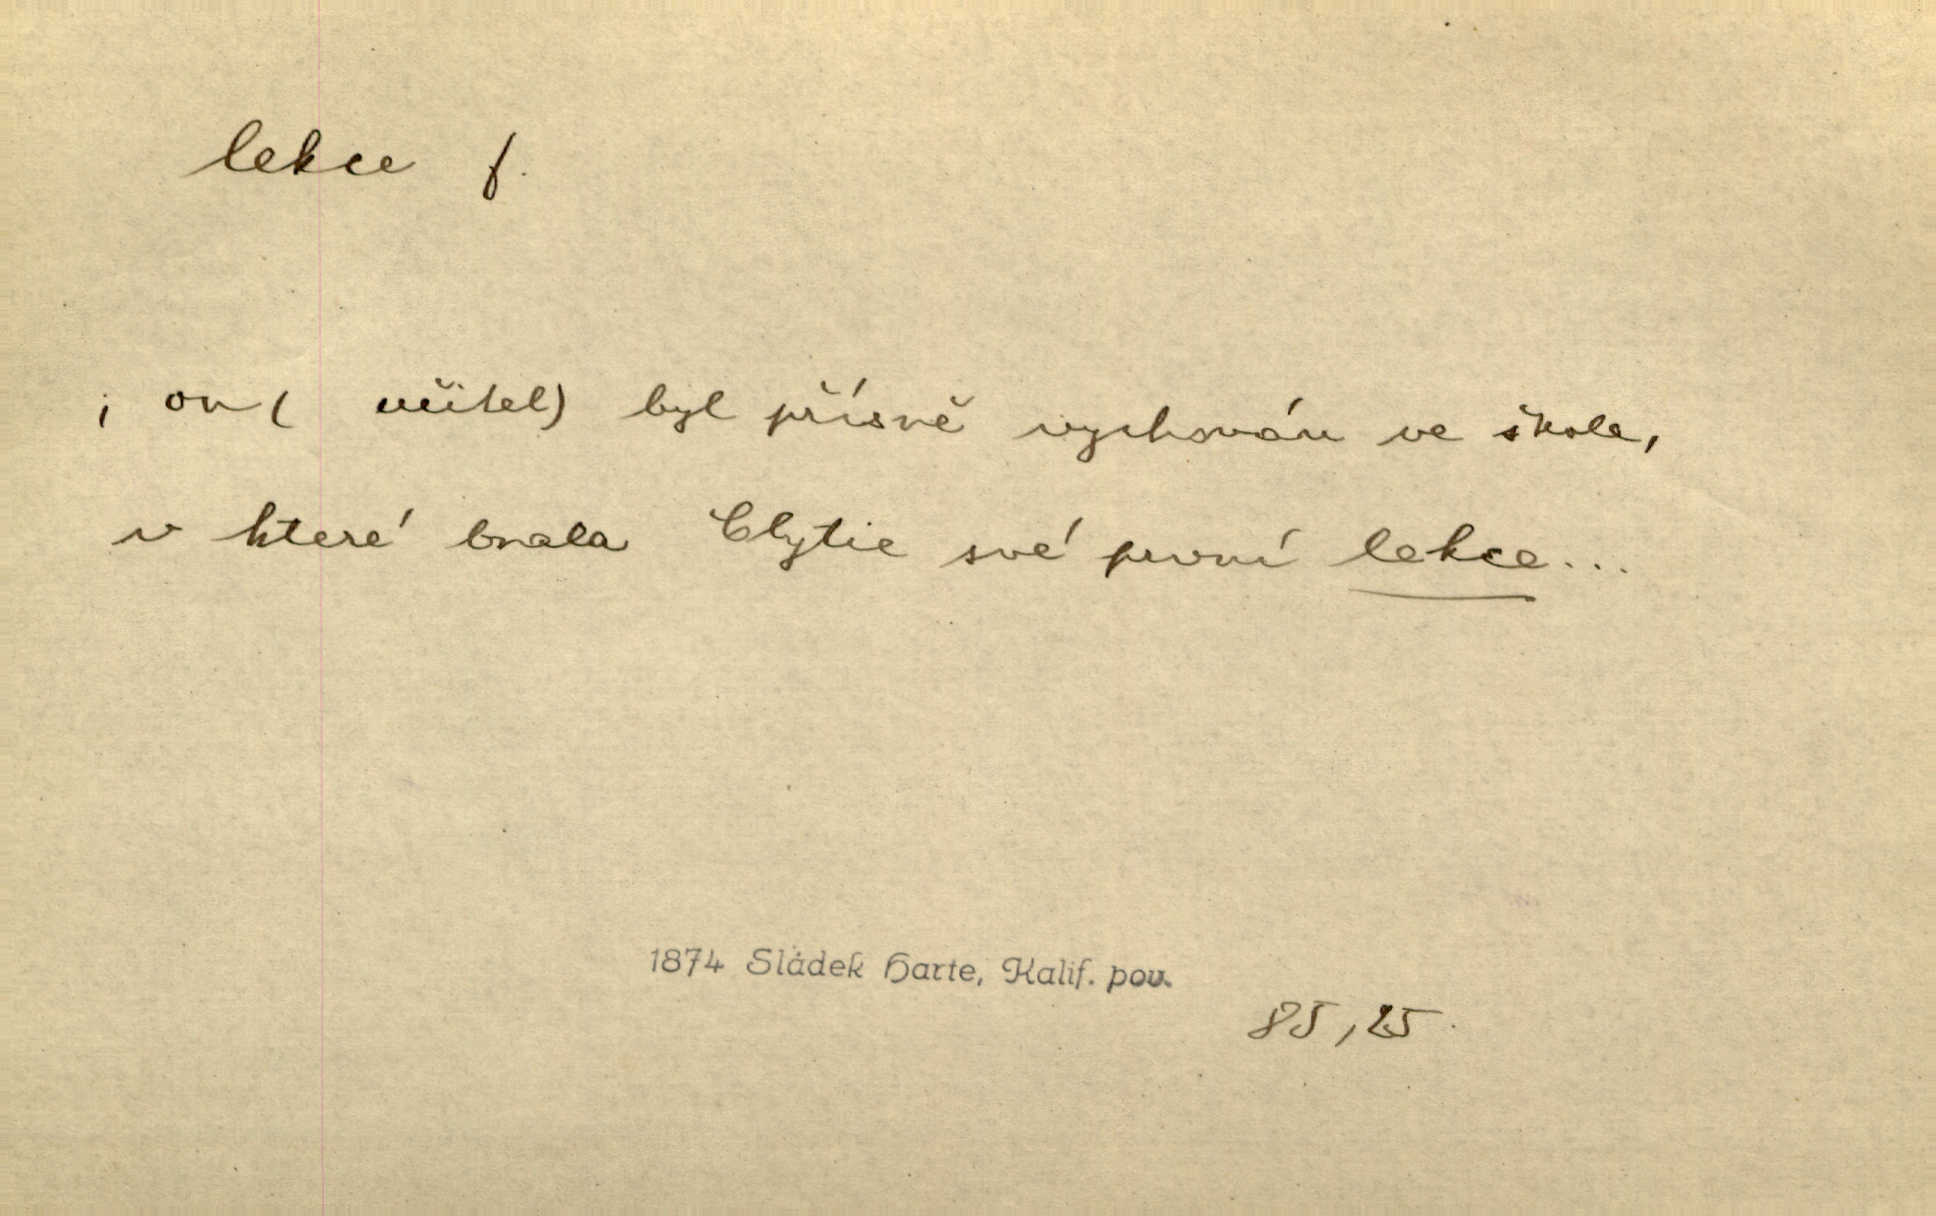 lekce f.
i on ( učitel) byl přísně vychován ve škole,
v které brala Clytie své první lekce...
1874 Sládek Harte, Kalif. pov.
85, 25